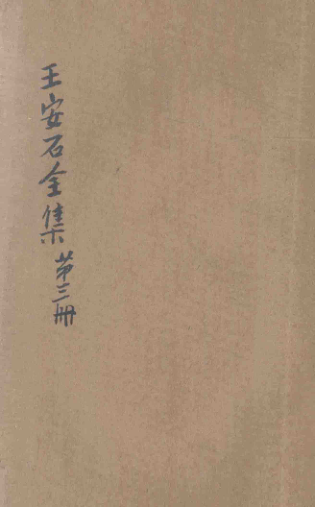 王安石全集 第三册